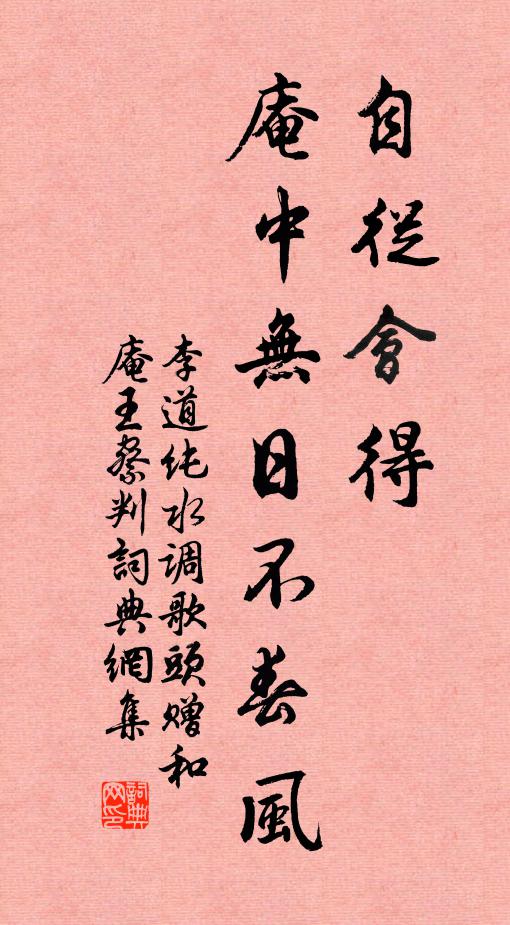 自從會得
庵中無日不春風
李道纯水调歌頭赠和
庵王察判詞典網集
詞典网印